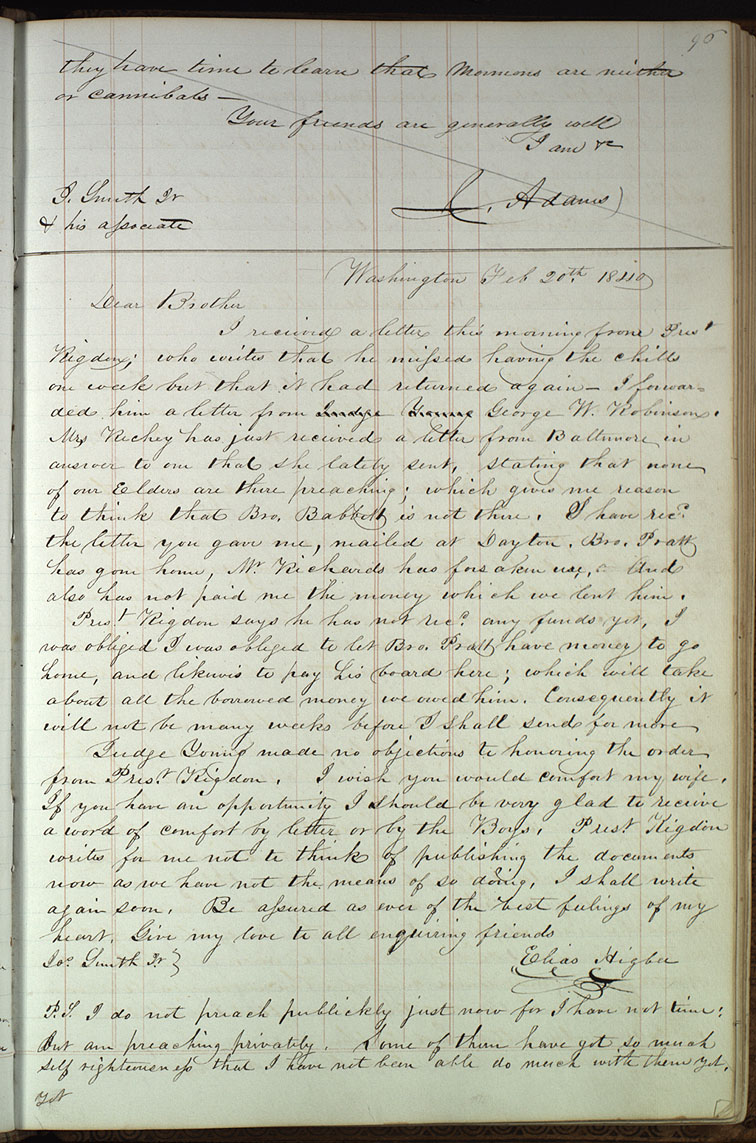 96
they have time to learn that Mormons are neither
or cannibals —
Your friends are generally well
I am &c
J. Smith Jr
& his associate
J. Adams
Washington Feb 20th. 1840
Dear Brother
I recieved a letter this morning from Prest
Rigdon; who writes that he missed having the chills
one week but that it had returned again — I forwar-
ded him a letter from Judge Young George W. Robinson.
Mrs Richey has just recieved a letter from Baltimore in
answer to one that she lately sent, stating that none
of our Elders are there preaching; which gives me reason
to think that Bro. Babbett is not there. I have recd.
the letter you gave me, mailed at Dayton. Bro. Pratt
has gone home, Mr Richards has forsaken us, And
also has not paid me the money which we lent him.
Prest Rigdon says he has not recd. any funds yet, I
was obliged I was obliged to let Bro. Pratt have money to go
home, and likewis to pay his board here; which will take
about all the borrowed money we owed him. Consequently it
will not be many weeks before I shall send for more
Judge Young made no objections to honoring the order
from Prest. Rigdon. I wish you would comfort my wife.
If you have an opportunity I should be very glad to recieve
a word of comfort by letter or by the Boys. Prest. Rigdon
writes for me not to think of publishing the documents
now as we have not the means of so doing, I shall write
again soon. Be assured as ever of the best feelings of my
heart. Give my love to all enquiring friends
Jos. Smith Jr }
Elias Higbee
P.S. I do not preach publickly just now for I have not time:
But am preaching privately. Some of them have got so much
self righteousness that I have not been able do much with them yet.
yet